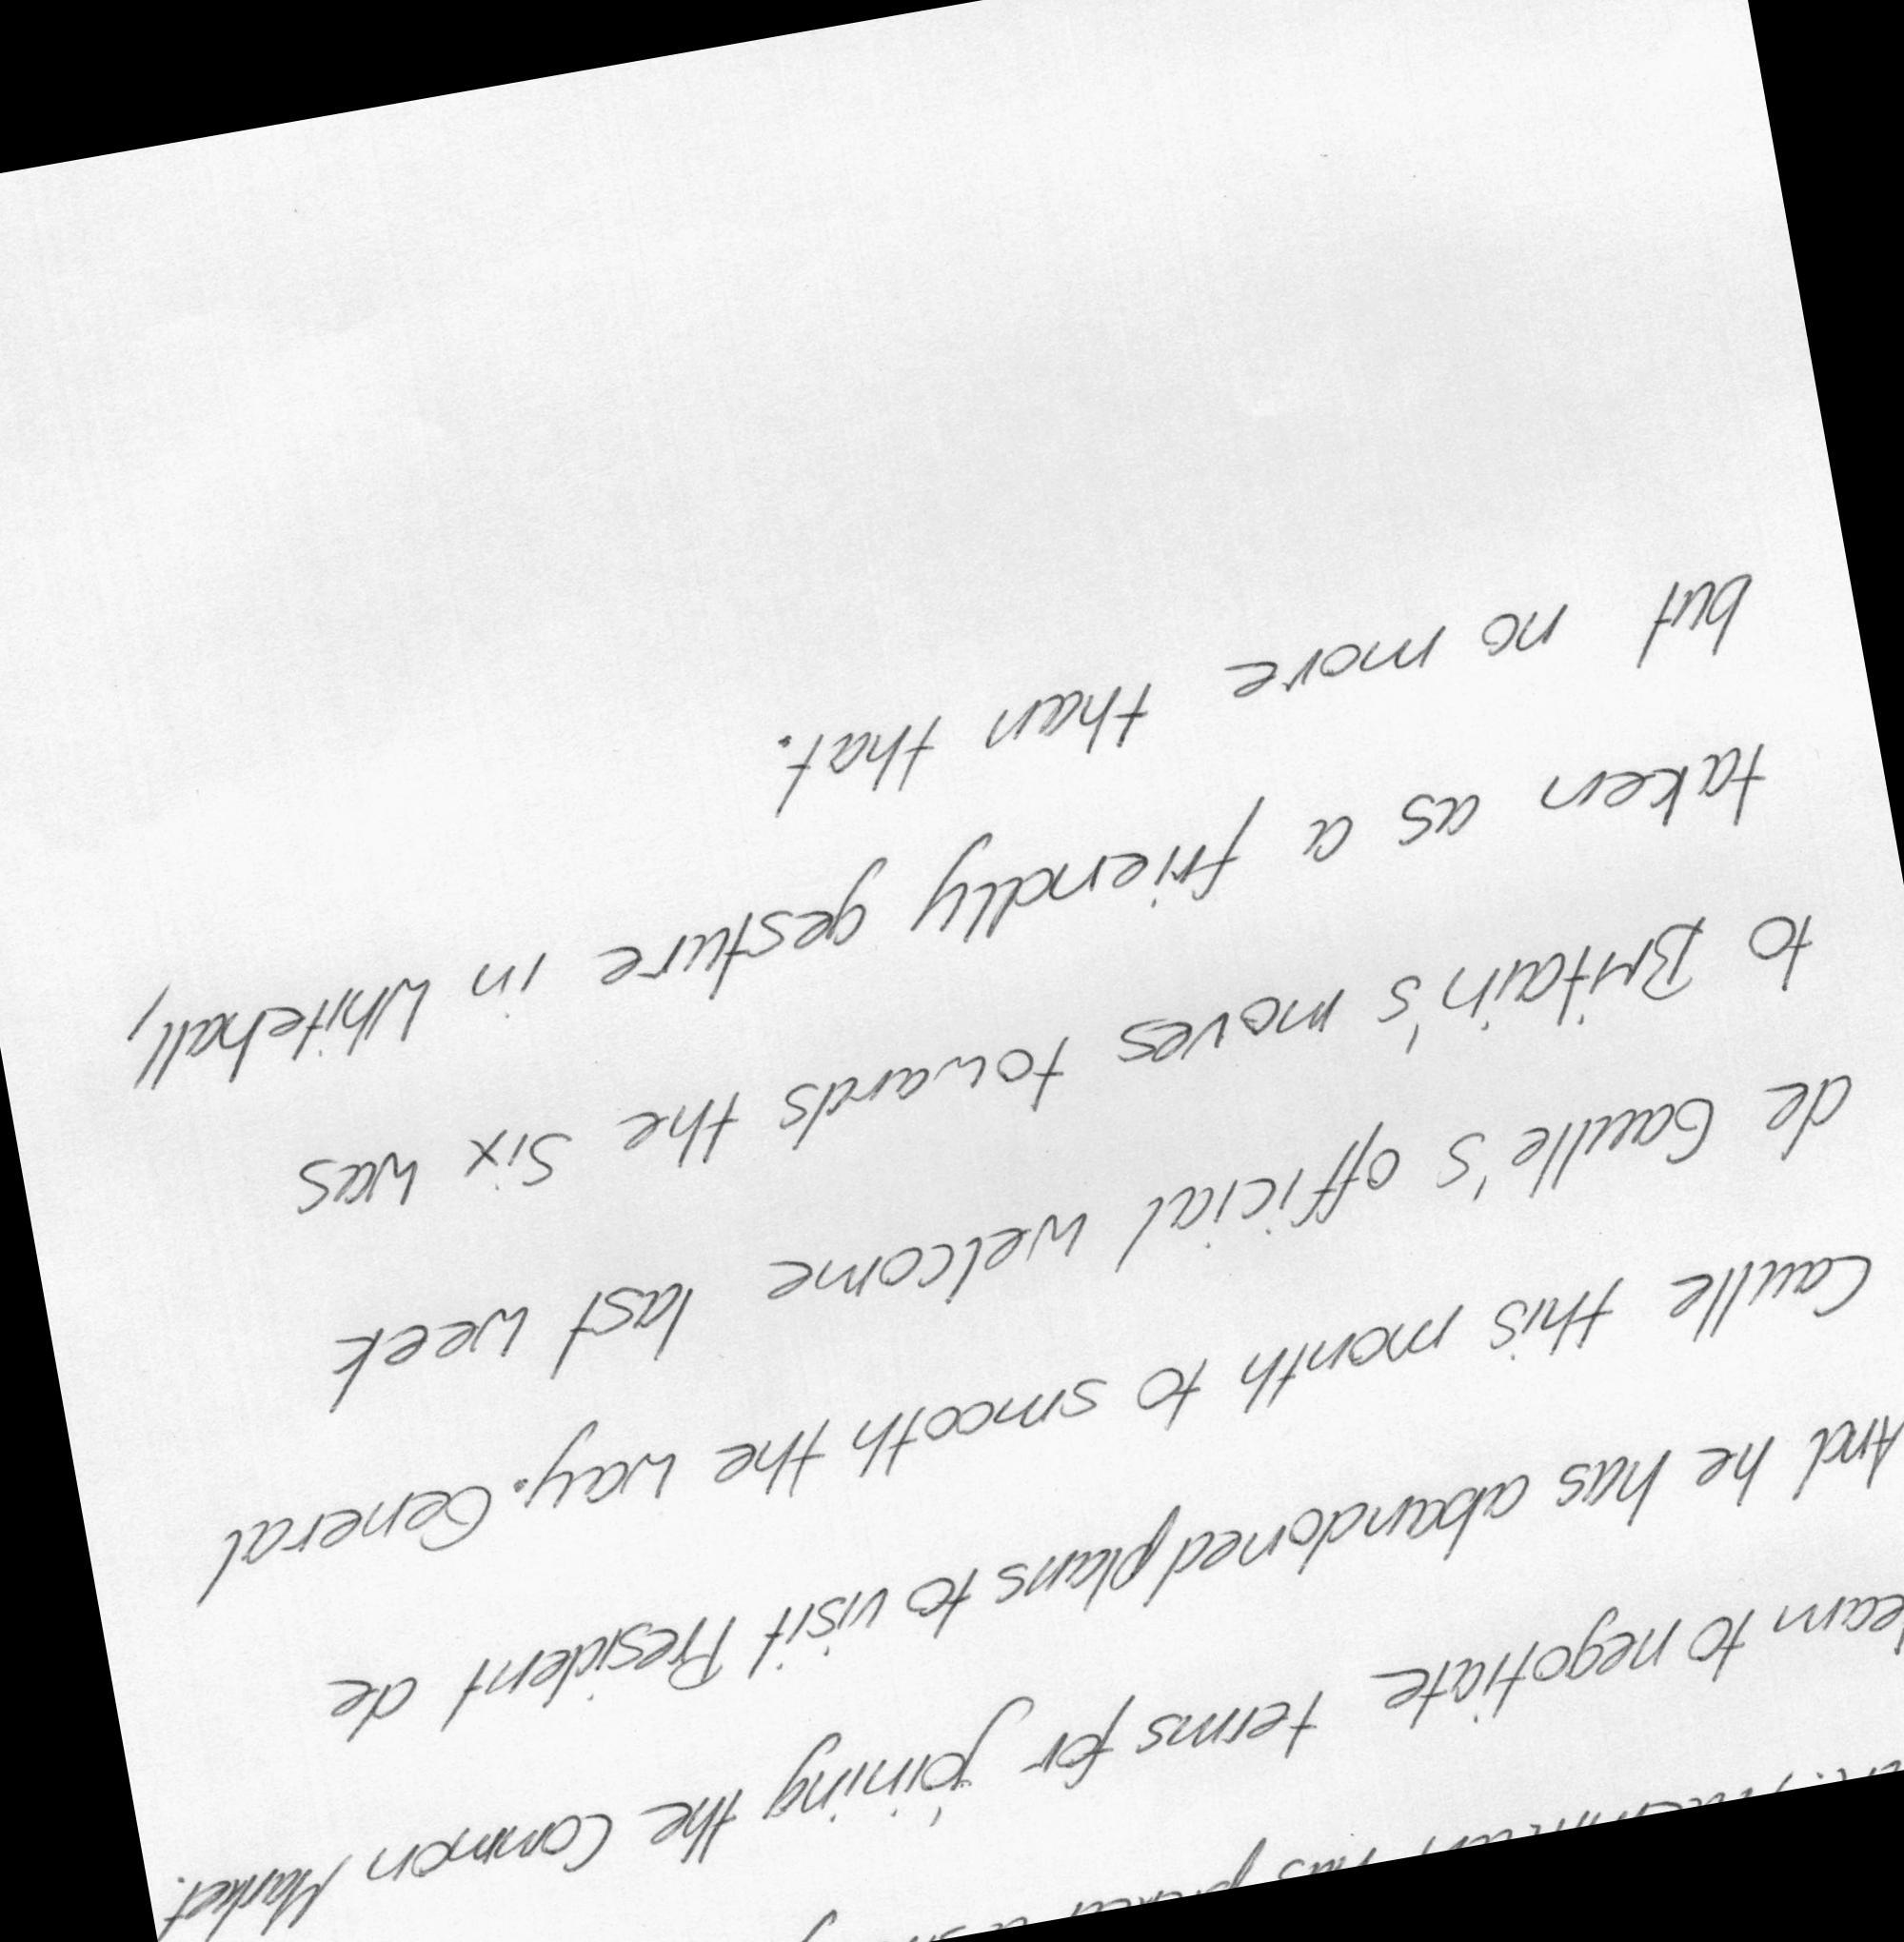 team to negotiate terms for joining the Common Market.
And he has abandoned plans to visit President de
Caulle this month to smooth the way. General
de Gaulle's official welcome last week
to Britain's moves towards the Six was
taken as a friendly gesture in Whitehall,
but no more than that.